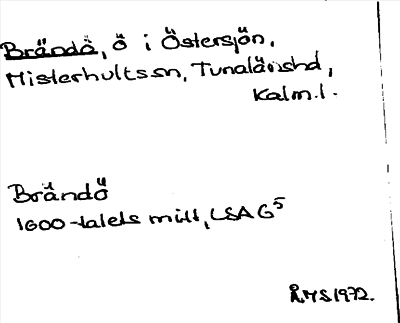 Brändö, ö i Östersjön,
Misterhults sn, Tunaläns hd,
Kalm. l.
Brändö
1600-talets mitt, LSA G5
ÅMS 1972.